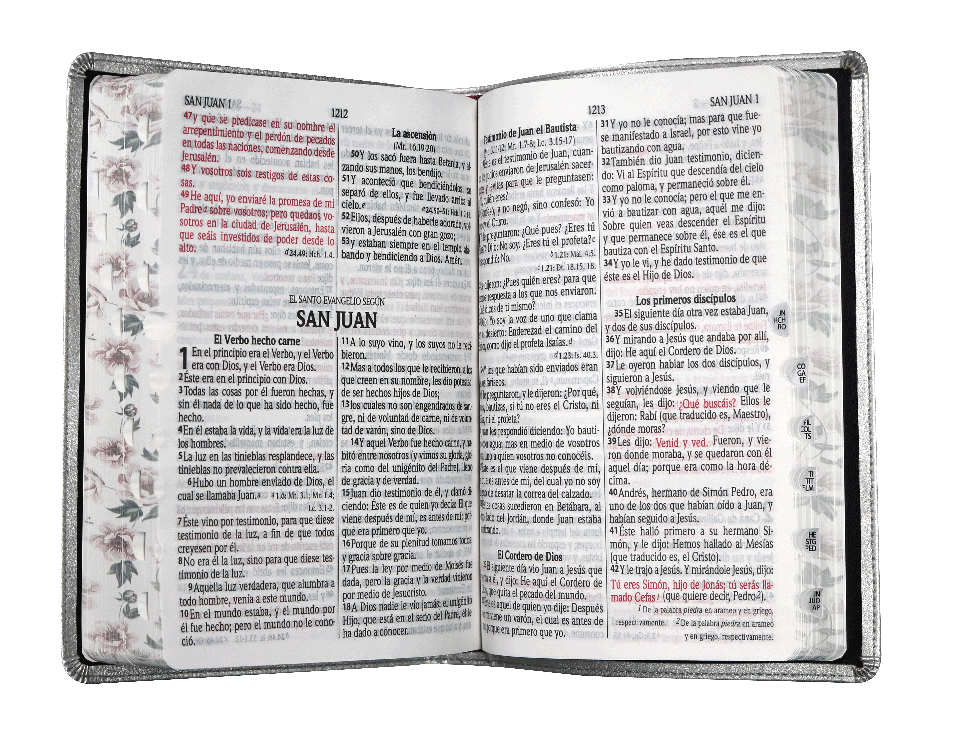 SAN JUAN 1
1212
47 Y que se predicase en su nombre el
arrepentimiento y el perdón de pecados
en todas las naciones, comenzando desde
Jerusalén.
48 Y vosotros sois testigos de estas co-
sas.
49 He aquí, yo enviaré la promesa de mi
Padre d sobre vosotros; pero quedaos vo-
sotros en la ciudad de Jerusalén, hasta
que seáis investidos de poder desde lo
alto.
d 24.49: Hch. 1.4.
La ascensión
(Mr. 16.19-20)
50 Y los sacó fuera hasta Betania, y al-
zando sus manos, los bendijo.
51 Y aconteció que bendiciéndolos, se
separó de ellos, y fue llevado arriba al
cielo.
52 Ellos, después de haberle adorado, vol-
vieron a Jerusalén con gran gozo;
53 y estaban siempre en el templo, ala-
bando y bendiciendo a Dios. Amén.
EL SANTO EVANGELIO SEGÚN
SAN JUAN
El Verbo hecho carne
1 En el principio era el Verbo, y el Verbo
era con Dios, y el Verbo era Dios.
2 Este era en el principio con Dios.
3 Todas las cosas por él fueron hechas, y
sin él nada de lo que ha sido hecho, fue
hecho.
4 En él estaba la vida, y la vida era la luz de
los hombres.
5 La luz en las tinieblas resplandece, y las
tinieblas no prevalecieron contra ella.
6 Hubo un hombre enviado de Dios, el
cual se llamaba Juan. a
a 1.6: Mt. 3.1; Mr. 1.4;
Lc. 3.1-2.
7 Éste vino por testimonio, para que diese
testimonio de la luz, a fin de que todos
creyesen por él.
8 No era él la luz, sino para que diese tes-
timonio de la luz.
9 Aquella luz verdadera, que alumbra a
todo hombre, venía a este mundo.
10 En el mundo estaba, y el mundo por
él fue hecho; pero el mundo no le cono-
ció.
11 A lo suyo vino, y los suyos no le reci-
bieron.
12 Mas a todos los que le recibieron, a los
que creen en su nombre, les dio potestad
de ser hechos hijos de Dios;
13 los cuales no son engendrados de san-
gre, ni de voluntad de carne, ni de volun-
tad de varón, sino de Dios.
14 Y aquel Verbo fue hecho carne, y ha-
bitó entre nosotros (y vimos su gloria, glo-
ria como del unigénito del Padre), lleno
de gracia y de verdad.
15 Juan dio testimonio de él, y clamó di-
ciendo: Éste es de quien yo decía: El que
viene después de mí, es antes de mí; por-
que era primero que yo.
16 Porque de su plenitud tomamos todos,
y gracia sobre gracia.
17 Pues la ley por medio de Moisés fue
dada, pero la gracia y la verdad vinieron
por medio de Jesucristo.
18 A Dios nadie le vio jamás; el unigénito
Hijo, que está en el seno del Padre, él le
ha dado a conocer.
1213
SAN JUAN 1
de Juan el Bautista
Mr. 1.7-8; Lc. 3.15-17)
es el testimonio de Juan, cuan-
enviaron de Jerusalén sacer-
para que le preguntasen:
eres?
y no negó, sino confesó: Yo
preguntaron: ¿Qué pues? ¿Eres tú
Dijo: No soy. ¿Eres tú el profeta? c
No.
b 1.21: Mal. 4.5.
c 1.21: Dt. 18.15, 18.
dijeron: ¿Pues quién eres? para que
respuesta a los que nos enviaron.
dices de ti mismo?
Yo soy la voz de uno que clama
desierto: Enderezad el camino del
como dijo el profeta Isaías. d
d 1.23: Is. 40.3.
que habían sido enviados eran
preguntaron, y le dijeron: ¿Por qué,
bautizas, si tú no eres el Cristo, ni
ni el profeta?
les respondió diciendo: Yo bauti-
agua; mas en medio de vosotros
uno a quien vosotros no conocéis.
es el que viene después de mí,
antes de mí, del cual yo no soy
desatar la correa del calzado.
cosas sucedieron en Betábara, al
lado del Jordán, donde Juan estaba
El Cordero de Dios
siguiente día vio Juan a Jesús que
a él, y dijo: He aquí el Cordero de
que quita el pecado del mundo.
es aquel de quien yo dije: Después
viene un varón, el cual es antes de
porque era primero que yo.
31 Y yo no le conocía; mas para que fue-
se manifestado a Israel, por esto vine yo
bautizando con agua.
32 También dio Juan testimonio, dicien-
do: Vi al Espíritu que descendía del cielo
como paloma, y permaneció sobre él.
33 Y yo no le conocía; pero el que me en-
vió a bautizar con agua, aquél me dijo:
Sobre quien veas descender el Espíritu
y que permanece sobre él, ése es el que
bautiza con el Espíritu Santo.
34 Y yo le vi, y he dado testimonio de que
éste es el Hijo de Dios.
Los primeros discípulos
35 El siguiente día otra vez estaba Juan,
y dos de sus discípulos.
36 Y mirando a Jesús que andaba por allí,
dijo: He aquí el Cordero de Dios.
37 Le oyeron hablar los dos discípulos, y
siguieron a Jesús.
38 Y volviéndose Jesús, y viendo que le
seguían, les dijo: ¿Qué buscáis? Ellos le
dijeron: Rabí (que traducido es, Maestro),
¿dónde moras?
39 Les dijo: Venid y ved. Fueron, y vie-
ron donde moraba, y se quedaron con él
aquel día; porque era como la hora dé-
cima.
40 Andrés, hermano de Simón Pedro, era
uno de los dos que habían oído a Juan, y
habían seguido a Jesús.
41 Éste halló primero a su hermano Si-
món, y le dijo: Hemos hallado al Mesías
(que traducido es, el Cristo).
42 Y le trajo a Jesús. Y mirándole Jesús, dijo:
Tú eres Simón, hijo de Jonás; tú serás lla-
mado Cefas 1 (que quiere decir, Pedro 2).
1 De la palabra piedra en arameo y en griego,
respectivamente. 2 De la palabra piedra en arameo
y en griego, respectivamente.
JN
HCH
RO
CO
GA
EF
FIL
COL
TS
TI
TIT
FLM
HE
STG
PED
JN
JUD
AP